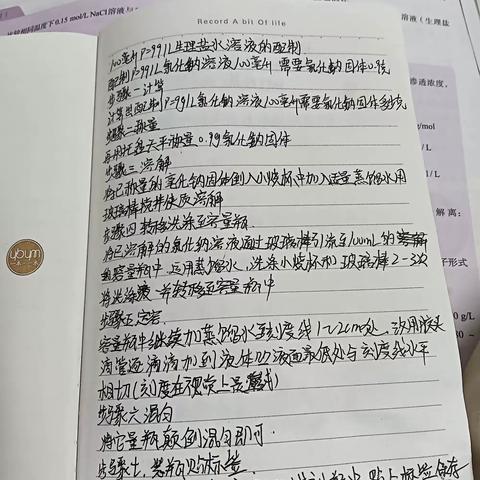 比较相同温度下0.15 mol/L NaCl溶液与
溶液（生理盐
渗透浓度，
g/mol
/L
/L
解离：
子形式
0 g/L
Record A bit Of life
100毫升ρ=9g/L生理盐水溶液的配制
配制ρ=9g/L氯化钠溶液100毫升 需要氯化钠固体0.9g
步骤一计算
计算出配制ρ=9g/L氯化钠溶液100毫升需要氯化钠固体多少克
步骤二称量
再用托盘天平称量0.9g氯化钠固体
步骤三 溶解
将已称量的氯化钠固体倒入小烧杯中加入适量蒸馏水用
玻璃棒搅拌使质溶解
步骤四 转移洗涤至容量瓶
将已溶解的氯化钠溶液通过玻璃棒引流至100mL的
容量瓶中，运用蒸馏水，洗涤小烧杯和玻璃棒2-3次
将洗涤液一并转移至容量瓶中
步骤五定容
容量瓶中继续加蒸馏水至刻度线1~2cm处，改用胶头
滴管逐滴滴加到液体凹液面最低处与刻度线水平
相切(刻度在
步骤六 混匀
将容量瓶颠倒混匀即可.
步骤七，装瓶贴标签
贴上标签保存
youm